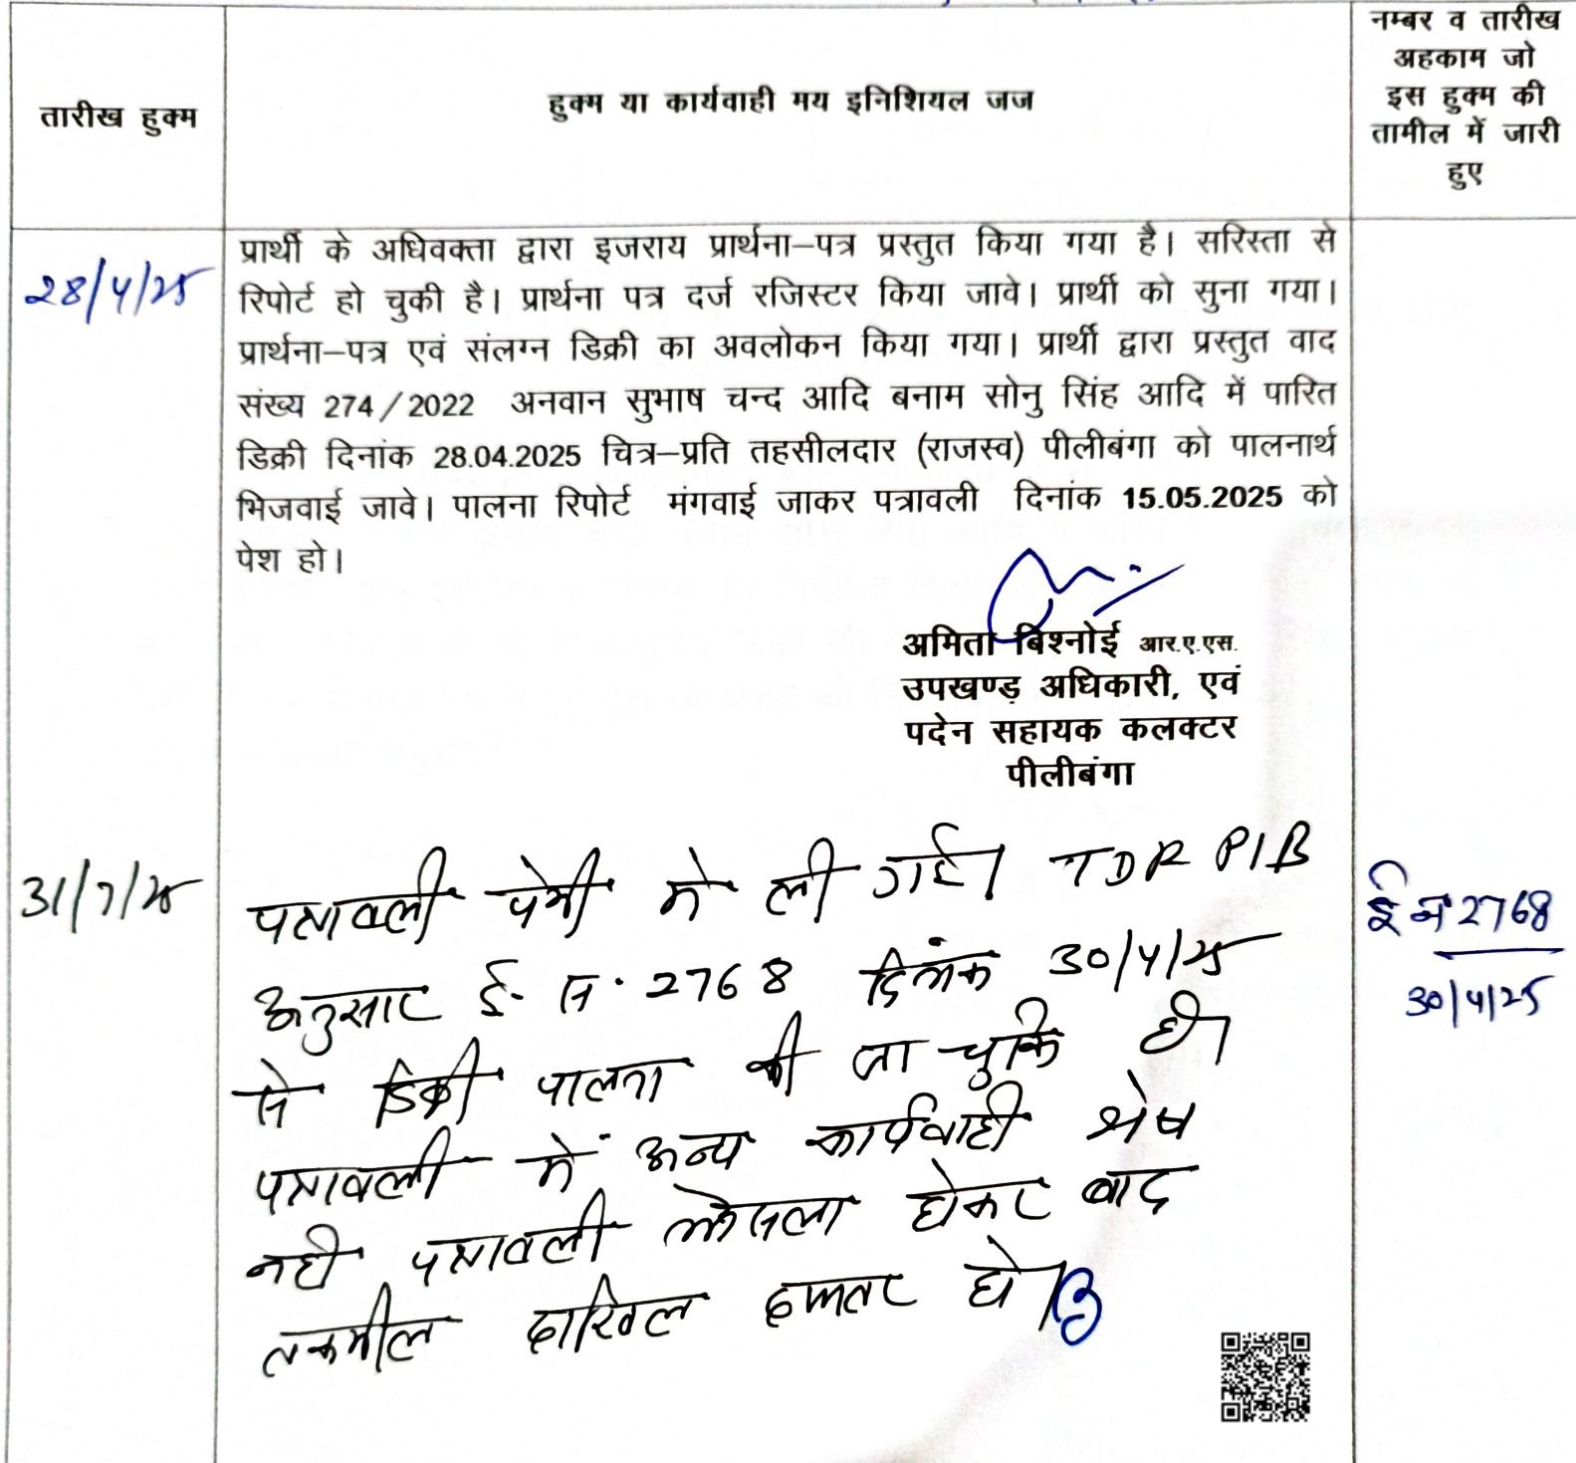 तारीख हुक्म
हुक्म या कार्यवाही मय इनिशियल जज
नम्बर व तारीख
अहकाम जो
इस हुक्म की
तामील में जारी
हुए
28/4/25
प्रार्थी के अधिवक्ता द्वारा इजराय प्रार्थना–पत्र प्रस्तुत किया गया है। सरिस्ता से
रिपोर्ट हो चुकी है। प्रार्थना पत्र दर्ज रजिस्टर किया जावे। प्रार्थी को सुना गया।
प्रार्थना–पत्र एवं संलग्न डिक्री का अवलोकन किया गया। प्रार्थी द्वारा प्रस्तुत वाद
संख्य 274/2022 अनवान सुभाष चन्द आदि बनाम सोनु सिंह आदि में पारित
डिक्री दिनांक 28.04.2025 चित्र–प्रति तहसीलदार (राजस्व) पीलीबंगा को पालनार्थ
भिजवाई जावे। पालना रिपोर्ट मंगवाई जाकर पत्रावली दिनांक 15.05.2025 को
पेश हो।
अमिता बिश्नोई आर.ए.एस.
उपखण्ड अधिकारी, एवं
पदेन सहायक कलक्टर
पीलीबंगा
31/7/25
पत्रावली पेशी मे ली गई। TDR PIB
अनुसार ई. स. 2768 दिनांक 30/4/25
से डिक्री पालना की जा चुकि है।
पत्रावली में अन्य कार्यवाही शेष
नही पत्रावली फैसला होकर बाद
तकमील दाखिल दफ्तर हो।
ई न 2768
30/4/25